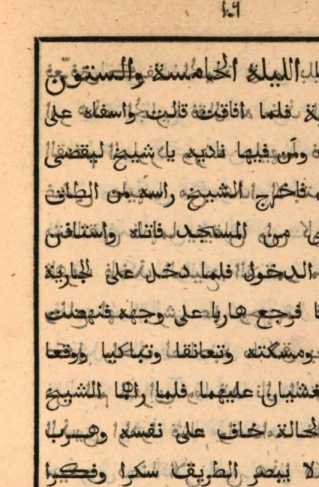 ١٠٩
الليلة الخامسة والستون
فلما افاقت قالت واسفاه على
ومن فيها ناديه يا شيخ ليقضى
فاخرج الشيخ راسه من الطاق
من المسجد فاتاه واستاذن
الدخول فلما دخل على الجارية
فرجع هاربا على وجهه فنهضت
ومسكته وتعانقا وتباكيا ووقعا
عليهما فلما راهما الشيخ
الحالة خاف على نفسه وهرب
لا يبصر الطريق سكرا وفكرا